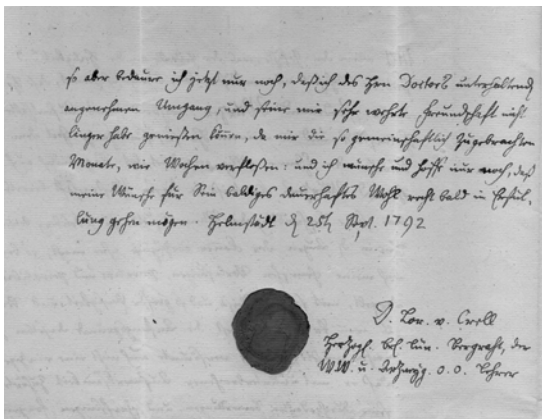 so aber bedaure ich jetzt nur noch, daß ich des Hrn Doctors unterhaltend
angenehmen Umgang, und seine mir sehr werthe Freundschaft nicht
länger habe genießen können, da mir die so gemeinschaftlich zugebrachten
Monate, wie Wochen verfloßen: und ich wünsche und hoffe nur noch, daß
meine Wünsche für Sein baldiges dauerhaftes Wohl recht bald in Erfül,
lung gehn mögen. Helmstädt d 25t Sept. 1792
D. Lor. v. Crell
Herzogl. br. lün. Bergrath, der
WW. u. Arzneyg. o. o. Lehrer